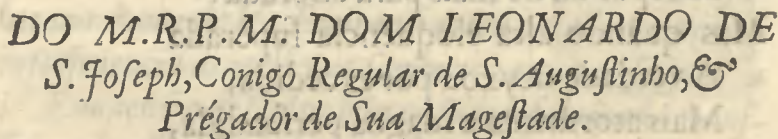 DO M.R.P.M. DOM LEONARDO DE
S. Joſeph, Conigo Regular de S. Auguſtinho, &
Prégador de Sua Mageſtade.